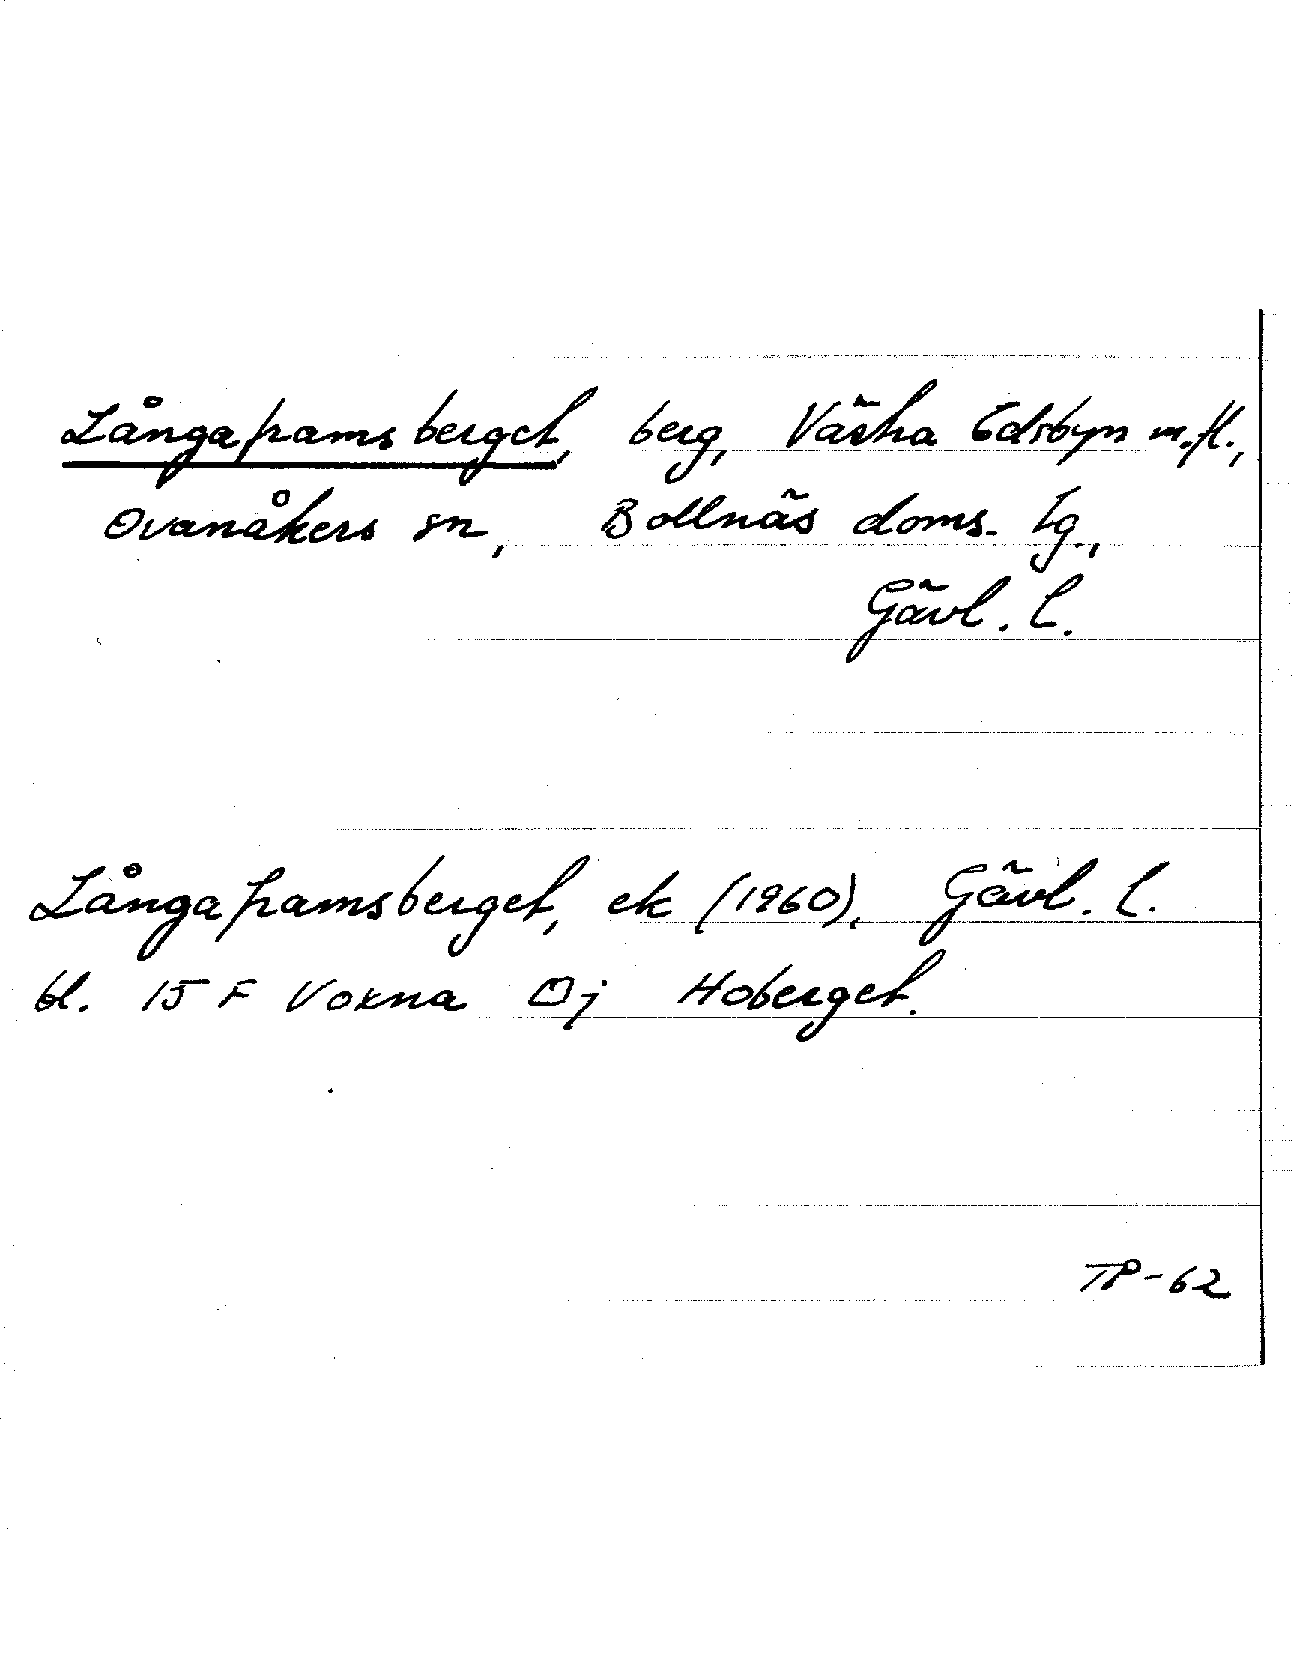 Långapamsberget, berg, Västra Edsbyn m.fl.,
Ovanåkers sn, Bollnäs doms. tg.,
Gävl. l.
Långapamsberget, ek (1960), Gävl. l.
bl. 15 F Voxna □ j Hoberget.
TP-62